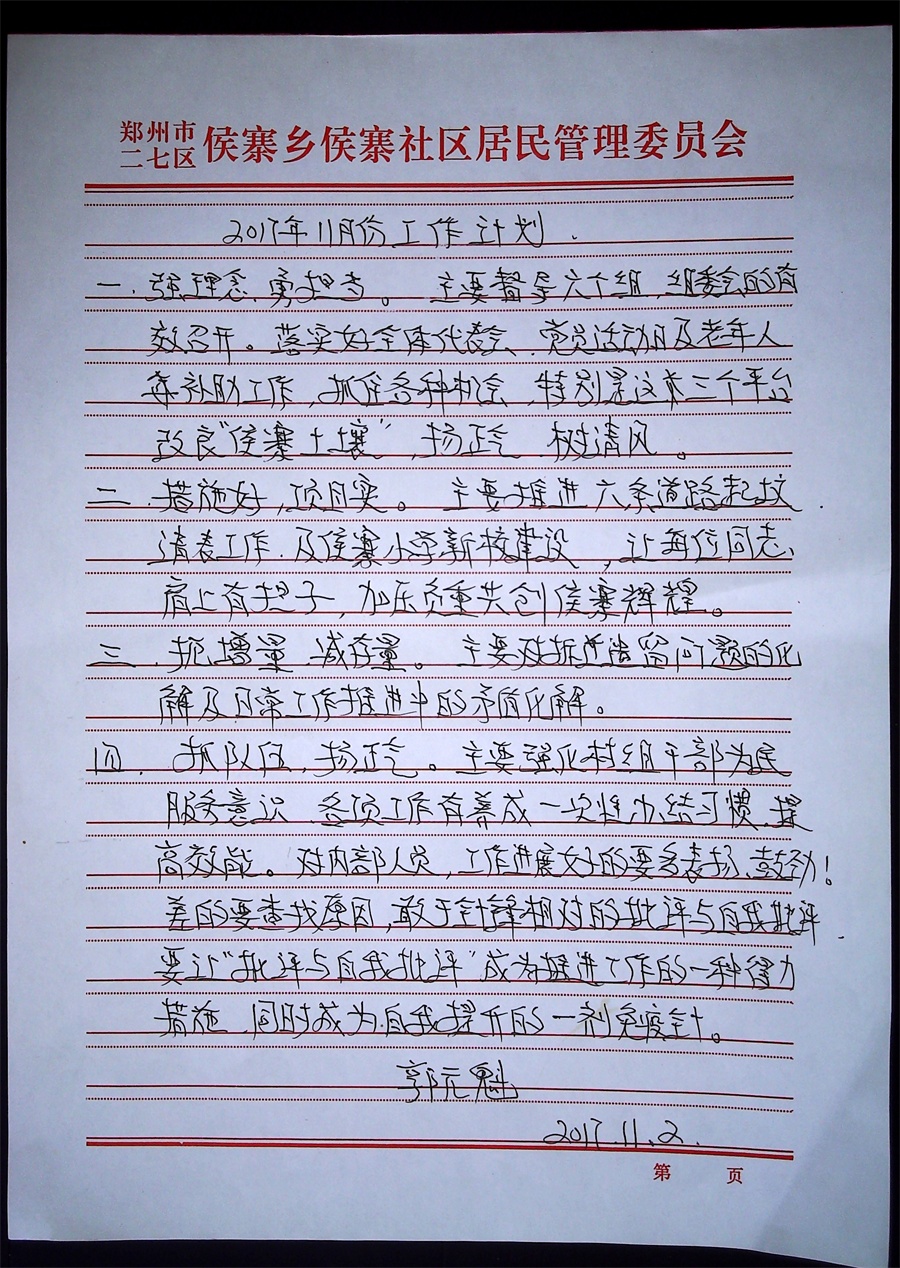 郑州市
二七区
侯寨乡侯寨社区居民管理委员会
2017年11月份工作计划
一.强理念 勇担当。 主要督导六个组,组委会的有
效召开。落实好全体代表会、党员活动日及老年人
养补助工作,抓住各种机会,特别是这第三个平台
改良“侯寨土壤”,扬正气 树清风。
二.措施好,项目实。 主要推进六条道路起坟
清表工作.及侯寨小学新校建设,让每位同志、
肩上有担子,加压负重共创侯寨辉煌。
三.抓增量 减存量。 主要对拆迁遗留问题的化
解及日常工作推进中的矛盾化解。
四.抓队伍,扬正气。主要强化村组干部为民
服务意识 各项工作有养成一次性办结习惯、提
高效能。对内部人员,工作进展好的要多表扬、鼓劲!
差的要查找原因,敢于针锋相对的批评与自我批评.
要让“批评与自我批评”成为推进工作的一种得力
措施、同时成为自我提升的一剂免疫针。
郭元魁
2017.11.2.
第 页